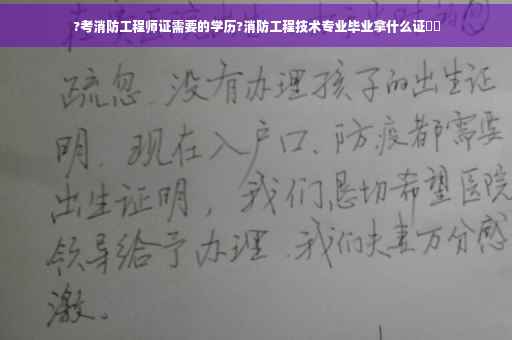 ?考消防工程师证需要的学历?消防工程技术专业毕业拿什么证
疏忽、没有办理孩子的出生证
明.现在入户口、防疫都需要
出生证明，我们恳切希望医院
领导给予办理.我们夫妻万分感
激。